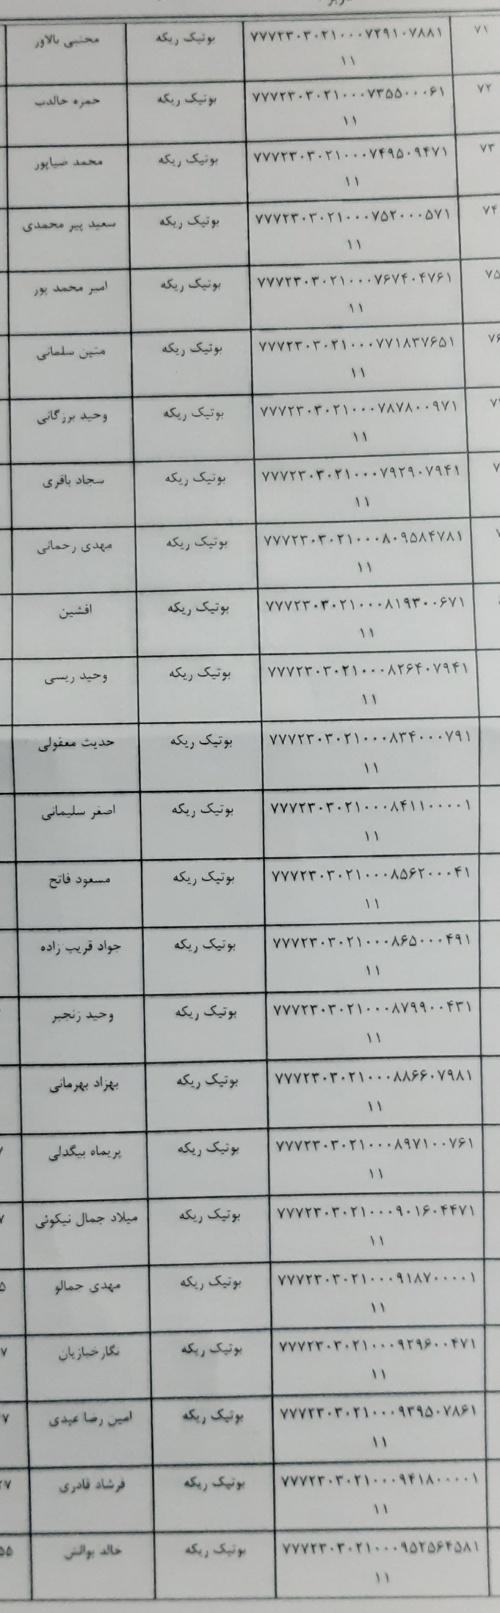 ۷۱ ۷۷۷۲۳۰۳۰۲۱۰۰۰۷۲۹۱۰۷۸۸۱ بوتیک ریکه مجتبی بالاور
۱۱
۷۲ ۷۷۷۲۳۰۳۰۲۱۰۰۰۷۳۵۵۰۰۰۶۱ بوتیک ریکه حمزه خالدب
۱۱
۷۳ ۷۷۷۲۳۰۳۰۲۱۰۰۰۷۴۹۵۰۹۴۷۱ بوتیک ریکه محمد ضیاپور
۱۱
۷۴ ۷۷۷۲۳۰۳۰۲۱۰۰۰۷۵۲۰۰۰۵۷۱ بوتیک ریکه سعید پیر محمدی
۱۱
۷۵ ۷۷۷۲۳۰۳۰۲۱۰۰۰۷۶۷۴۰۴۷۶۱ بوتیک ریکه امیر محمد پور
۱۱
۷۷۷۲۳۰۳۰۲۱۰۰۰۷۷۱۸۳۷۶۵۱ بوتیک ریکه متین سلمانی
۱۱
۷۷۷۲۳۰۳۰۲۱۰۰۰۷۸۷۸۰۰۹۷۱ بوتیک ریکه وحید برزگانی
۱۱
۷۷۷۲۳۰۳۰۲۱۰۰۰۷۹۲۹۰۷۹۴۱ بوتیک ریکه سجاد باقری
۱۱
۷۷۷۲۳۰۳۰۲۱۰۰۰۸۰۹۵۸۴۷۸۱ بوتیک ریکه مهدی رحمانی
۱۱
۷۷۷۲۳۰۳۰۲۱۰۰۰۸۱۹۳۰۰۶۷۱ بوتیک ریکه افشین
۱۱
۷۷۷۲۳۰۳۰۲۱۰۰۰۸۲۶۴۰۷۹۴۱ بوتیک ریکه وحید ریسی
۱۱
۷۷۷۲۳۰۳۰۲۱۰۰۰۸۳۴۰۰۰۷۹۱ بوتیک ریکه حدیث معقولی
۱۱
۷۷۷۲۳۰۳۰۲۱۰۰۰۸۴۱۱۰۰۰۰۱ بوتیک ریکه اصغر سلیمانی
۱۱
۷۷۷۲۳۰۳۰۲۱۰۰۰۸۵۶۲۰۰۰۴۱ بوتیک ریکه مسعود فاتح
۱۱
۷۷۷۲۳۰۳۰۲۱۰۰۰۸۶۵۰۰۰۴۹۱ بوتیک ریکه جواد قریب زاده
۱۱
۷۷۷۲۳۰۳۰۲۱۰۰۰۸۷۹۹۰۰۴۳۱ بوتیک ریکه وحید زنجیر
۱۱
۷۷۷۲۳۰۳۰۲۱۰۰۰۸۸۶۶۰۷۹۸۱ بوتیک ریکه بهزاد بهرمانی
۱۱
۷۷۷۲۳۰۳۰۲۱۰۰۰۸۹۷۱۰۰۷۶۱ بوتیک ریکه پریماه بیگدلی
۱۱
۷۷۷۲۳۰۳۰۲۱۰۰۰۹۰۱۶۰۴۴۷۱ بوتیک ریکه میلاد جمال نیکوئی
۱۱
۷۷۷۲۳۰۳۰۲۱۰۰۰۹۱۸۷۰۰۰۰۱ بوتیک ریکه مهدی جمالو
۱۱
۷۷۷۲۳۰۳۰۲۱۰۰۰۹۲۹۶۰۰۴۷۱ بوتیک ریکه نگار خبازیان
۱۱
۷۷۷۲۳۰۳۰۲۱۰۰۰۹۳۹۵۰۷۸۶۱ بوتیک ریکه امین رضا عیدی
۱۱
۷۷۷۲۳۰۳۰۲۱۰۰۰۹۴۱۸۰۰۰۰۱ بوتیک ریکه فرشاد قادری
۱۱
۷۷۷۲۳۰۳۰۲۱۰۰۰۹۵۲۵۶۴۵۸۱ بوتیک ریکه خالد بوالش
۱۱